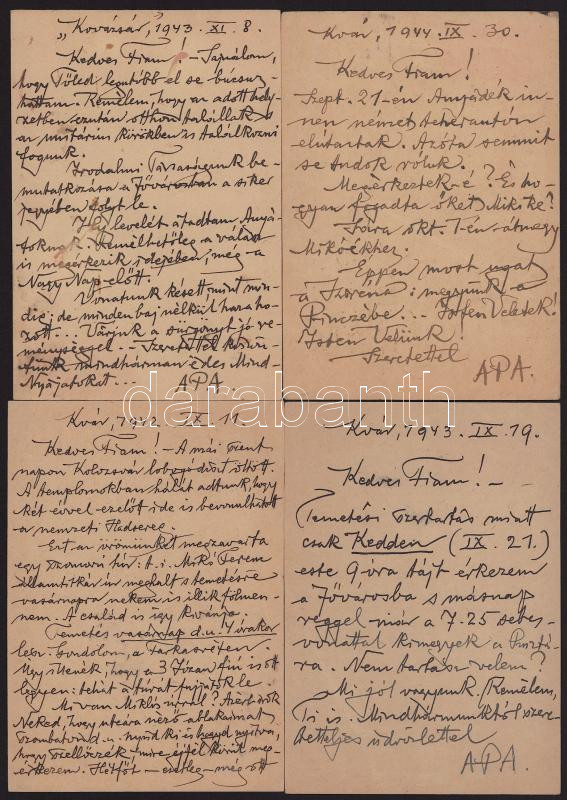 "Kovászár, 1943. XI. 8.
Kedves Fiam! Sajnálom,
hogy Tőled legutóbb el se búcsuz-
hattam. Remélem, hogy az adott hely-
zetben ezután otthon találkak s
az unitárius körökben is találkozni
fogunk.
Irodalmi Társaságunk be-
mutatkozása a Fővárosban a siker
jegyében folyt le.
levelét átadtam Anyá-
toknak. Remélhetőleg a válasz
is megérkezik idejében, még a
Nagy Nap előtt.
Vonatunk késett, mint min-
dig; de minden baj nélkül haza ho-
zott... Várjuk a sürgönyt jó re-
ménységgel... Szeretettel köszön-
tünk mindhárman édes Mind-
Nyájatokat...
APA
Kvár, 1944. IX. 30.
Kedves Fiam!
Szept. 21-én Anyádék in-
nen német teherauton
elutaztak. Azóta semmit
se tudok róluk.
Megérkeztek-é? És ho-
gyan fogadta őket Mikike?
Sára okt. 1-én átmegy
Mikóékhez.
Éppen most ugat
a Sziréna: megyünk a
Pinczébe... Isten Veletek!
Isten Velünk!
Szeretettel
APA.
Kvár, 1942. IX. 11.
Kedves Fiam! - A mai szent
napon Kolozsvár lobogó díszt öltött.
A templomokban hálát adtunk, hogy
két évvel ezelőtt ide is bevonulhatott
a nemzeti Hadsereg.
Ezt az örömünket megzavarta
egy szomorú hír: t. i. Mikó Ferenc
államtitkár úr meghalt s temetésre
vasárnapra nekem is illik fölmen-
nem. A család is így kívánja.
Temetés vasárnap d. u. 7 órakor
lesz. Gondolom, a Farkasréten.
Úgy illenék, hogy a 3 Józan fiú is ott
legyen: tehát a túrát fújjátok le.
Mi van Miklós úrral? Azért írok
Neked, hogy utczára néző ablakaimat
szombaton d. u. nyisd ki és hagyd nyitva,
hogy szellőzzék - mire éjfél körül meg-
érkezem. Hétfőt - esetleg - még ott
Kvár, 1943. IX. 19.
Kedves Fiam! -
Temetési szertartás miatt
csak Kedden (IX. 21.)
este 9 óra tájt érkezem
a Fővárosba s másnap
reggel már a 7.25 sebes-
vonattal kimegyek a Pusztá-
ra. Nem tartasz velem?
Mi jól vagyunk. Remélem,
Ti is. Mindhármunktól szere-
tetteljes üdvözlettel
APA.
darabanth